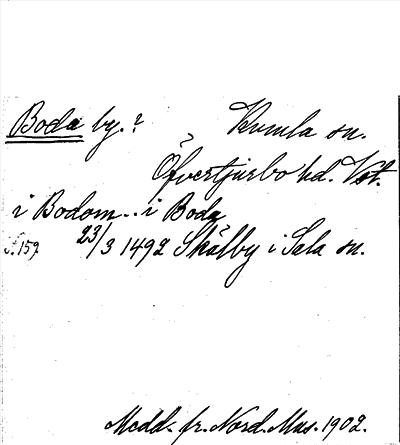 Boda by.? Kumla sn.
Öfvertjurbo hd. Vst.
i Bodom.. i Boda
s. 159 23/3 1492 Skålby i Sala sn.
Medd. fr. Nord. Mus. 1902.